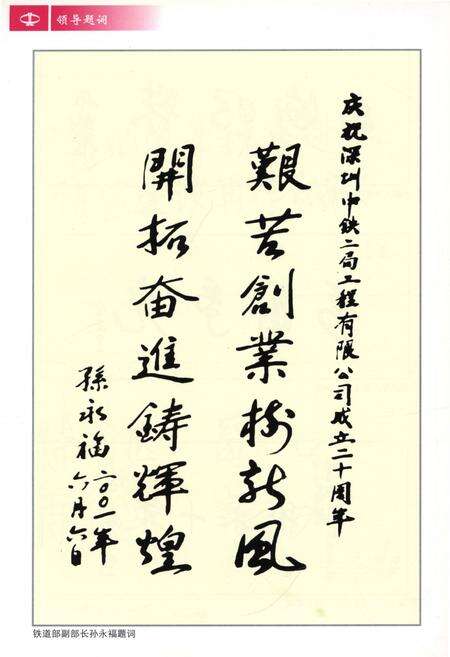 领导题词
庆祝深圳中铁二局工程有限公司成立二十周年
艱苦創業樹新風
開拓奮進鑄輝煌
孫永福
二〇〇一年
六月六日
铁道部副部长孙永福题词